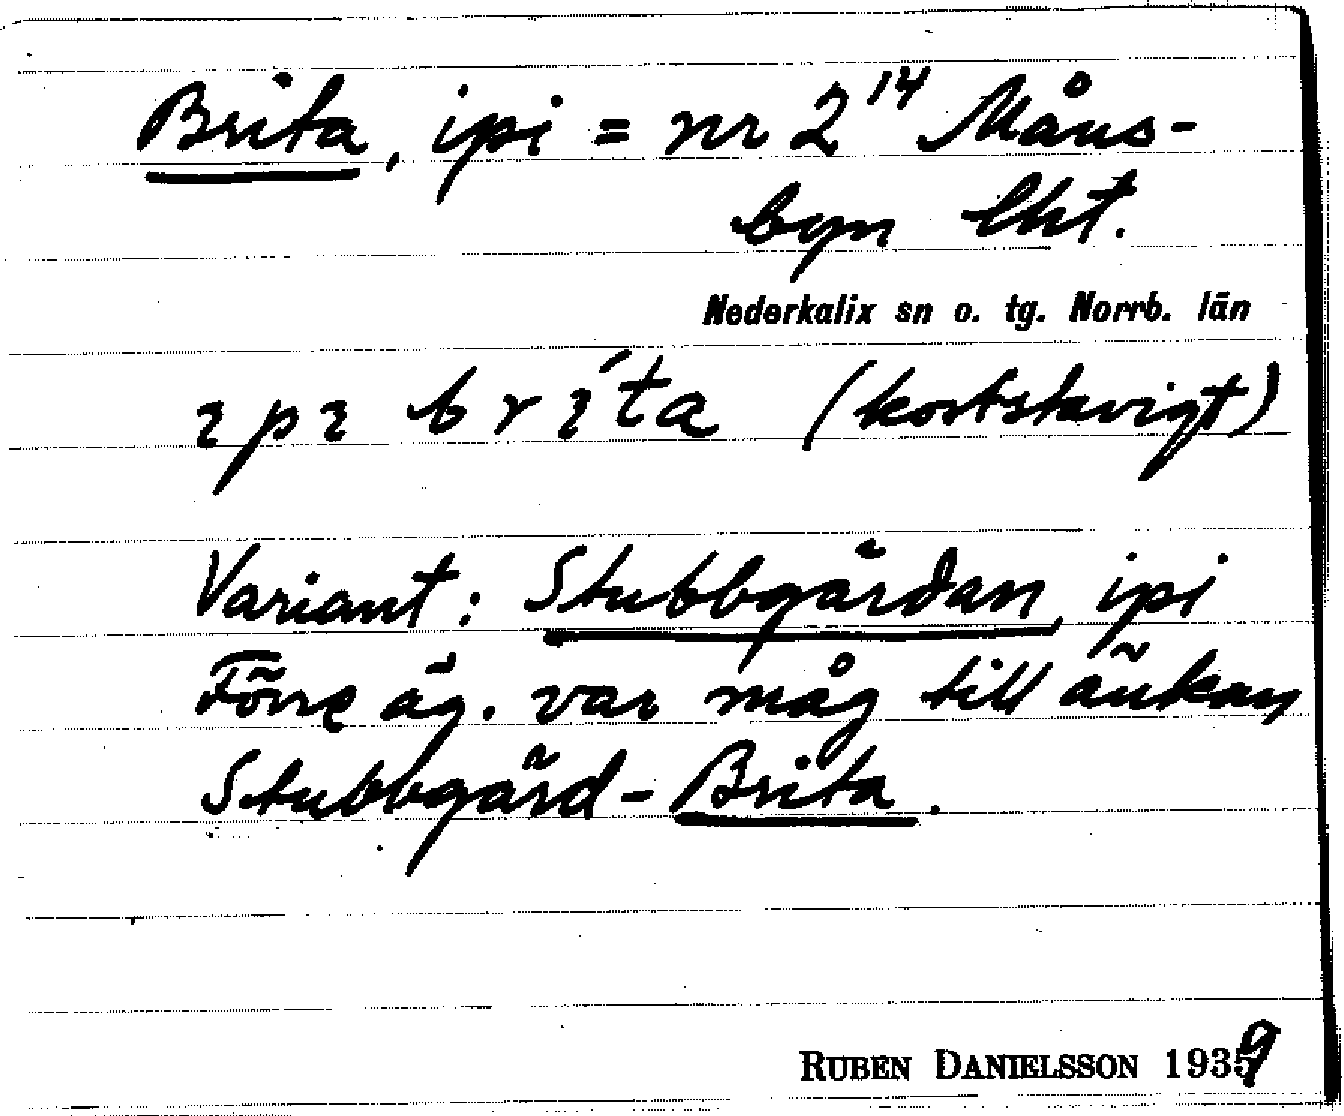 Brita, ipi = nr 2¹⁴ Måns-
byn lht.
Nederkalix sn o. tg. Norrb. län
ɩpɩ brɩ́ta (kortstavigt)
Variant: Stubbgårdan, ipi
Förre äg. var måg till änkan
Stubbgård-Brita.
RUBEN DANIELSSON 1939